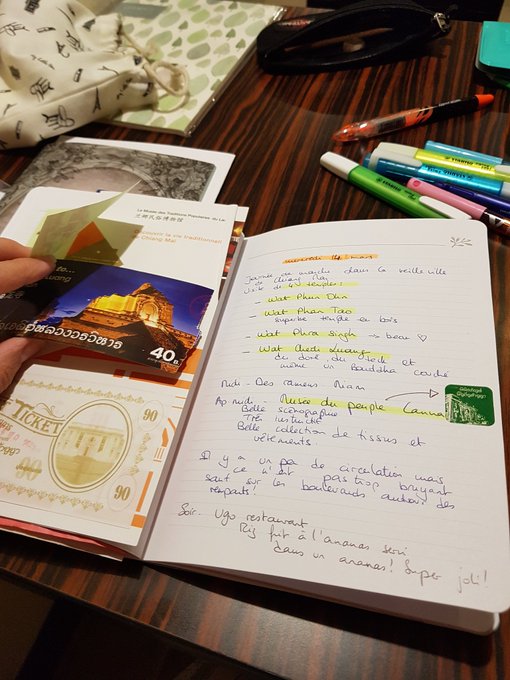 Le Musée des Traditions Populaires du Lan
Découvrir la vie traditionnelle
Chiang Mai
40
TICKET
90
90
90
mercredi 14 mars
Journée de marche dans la vieille ville
de Chiang Mai
Visite de 4 temples :
- Wat Phan Ohn
- Wat Phan Tao
superbe temple en bois
- Wat Phra Singh → beau ♡
- Wat Chedi Luang
du doré, du Teck et
même un Bouddha couché
Midi - Des ramens. Miam
Ap midi - Musée du peuple Lanna
Belle scénographie
Très instructif
Belle collection de tissus et
vêtements.
Il y a un peu de circulation mais
ce n'est pas trop bruyant
sauf sur les boulevards autour des
remparts!
Soir - Ugo restaurant
Riz frit à l'ananas servi
dans un ananas! Super joli!